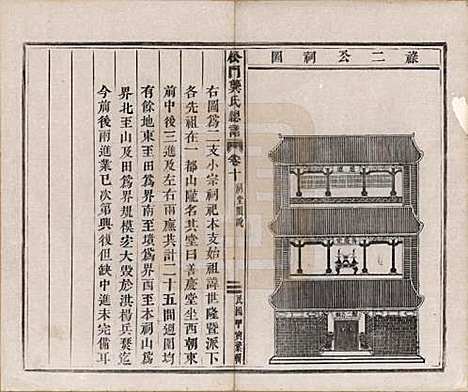 祿二公祠圖
松門龔氏總譜
卷十
祠堂圖說
右圖爲二支小宗祠祀本支始祖諱世隆暨派下
各先祖在一都山隴名其堂曰善慶堂坐西朝東
前中後三進及左右兩廡共計二十五間週圍均
有餘地東至田爲界南至墳爲界西至本祠山爲
界北至山及田爲界規模宏大毀於洪楊兵燹迄
今前後兩進業已次第興復但缺中進未完備耳